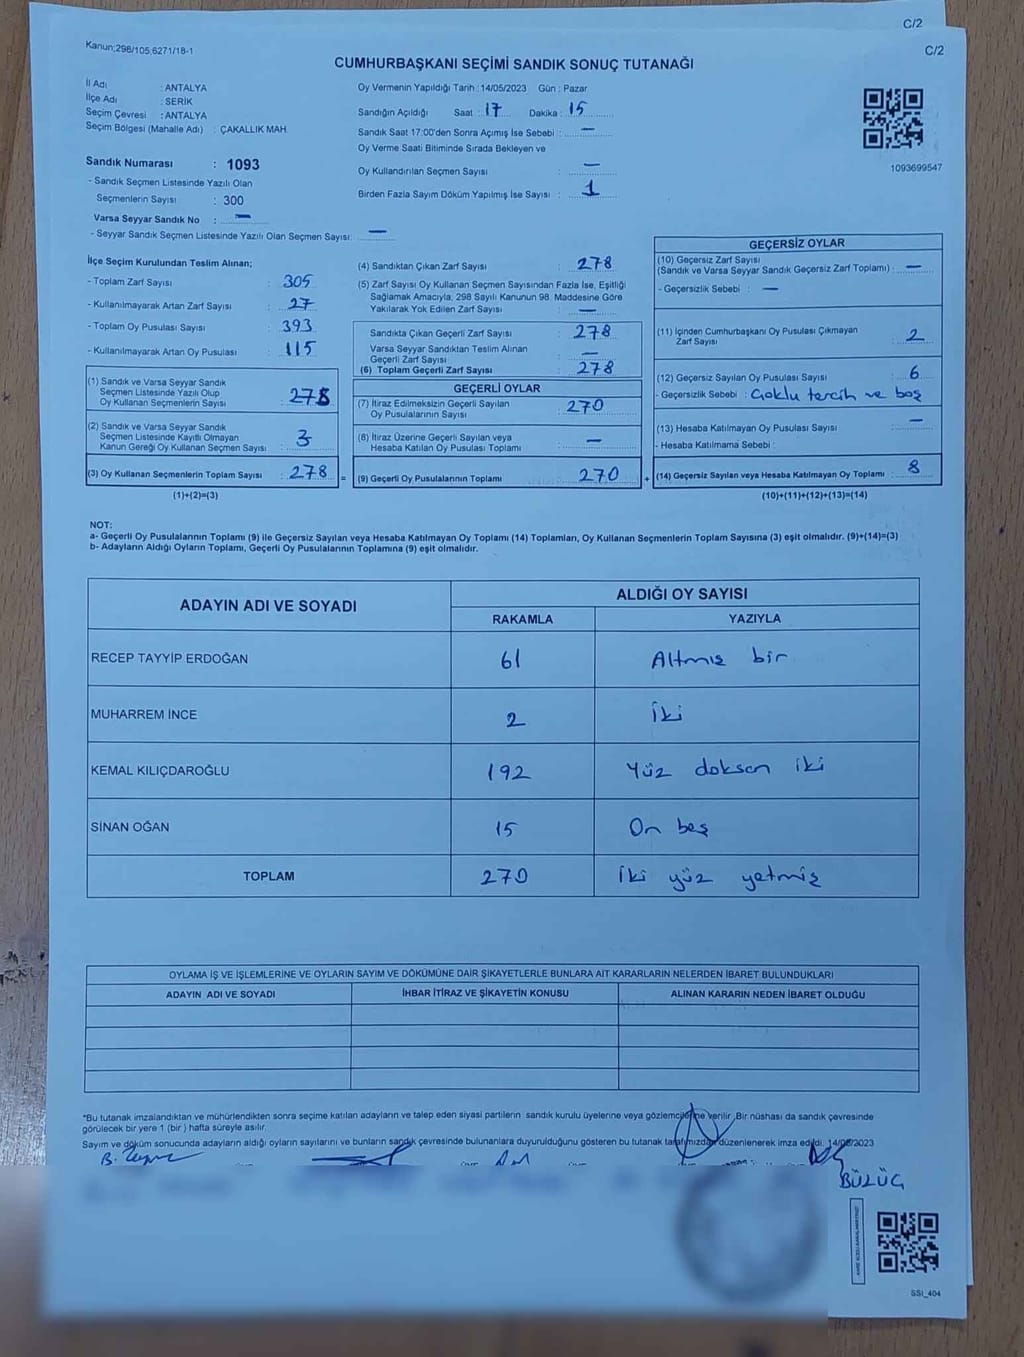 C/2
C/2
Kanun;298/105,6271/18-1
CUMHURBAŞKANI SEÇİMİ SANDIK SONUÇ TUTANAĞI
İl Adı : ANTALYA
İlçe Adı : SERİK
Seçim Çevresi : ANTALYA
Seçim Bölgesi (Mahalle Adı) : ÇAKALLIK MAH.
Sandık Numarası : 1093
- Sandık Seçmen Listesinde Yazılı Olan
Seçmenlerin Sayısı : 300
Varsa Seyyar Sandık No : —
- Seyyar Sandık Seçmen Listesinde Yazılı Olan Seçmen Sayısı: —
Oy Vermenin Yapıldığı Tarih : 14/05/2023 Gün : Pazar
Sandığın Açıldığı Saat : 17 Dakika : 15
Sandık Saat 17:00'den Sonra Açımış İse Sebebi : —
Oy Verme Saati Bitiminde Sırada Bekleyen ve
Oy Kullandırılan Seçmen Sayısı : —
Birden Fazla Sayım Döküm Yapılmış İse Sayısı : 1
1093699547
İlçe Seçim Kurulundan Teslim Alınan;
- Toplam Zarf Sayısı : 305
- Kullanılmayarak Artan Zarf Sayısı : 27
- Toplam Oy Pusulası Sayısı : 393
- Kullanılmayarak Artan Oy Pusulası : 115
(1) Sandık ve Varsa Seyyar Sandık
Seçmen Listesinde Yazılı Olup
Oy Kullanan Seçmenlerin Sayısı :
(2) Sandık ve Varsa Seyyar Sandık
Seçmen Listesinde Kayıtlı Olmayan
Kanun Gereği Oy Kullanan Seçmen Sayısı : 3
(3) Oy Kullanan Seçmenlerin Toplam Sayısı : 278 =
(1)+(2)=(3)
(4) Sandıktan Çıkan Zarf Sayısı : 278
(5) Zarf Sayısı Oy Kullanan Seçmen Sayısından Fazla İse, Eşitliği
Sağlamak Amacıyla, 298 Sayılı Kanunun 98. Maddesine Göre
Yakılarak Yok Edilen Zarf Sayısı : —
Sandıkta Çıkan Geçerli Zarf Sayısı : 278
Varsa Seyyar Sandıktan Teslim Alınan
Geçerli Zarf Sayısı : —
(6) Toplam Geçerli Zarf Sayısı : 278
GEÇERLİ OYLAR
(7) İtiraz Edilmeksizin Geçerli Sayılan
Oy Pusulalarının Sayısı : 270
(8) İtiraz Üzerine Geçerli Sayılan veya
Hesaba Katılan Oy Pusulası Toplamı : —
(9) Geçerli Oy Pusulalarının Toplamı : 270 +
GEÇERSİZ OYLAR
(10) Geçersiz Zarf Sayısı
(Sandık ve Varsa Seyyar Sandık Geçersiz Zarf Toplamı) : —
- Geçersizlik Sebebi : —
(11) İçinden Cumhurbaşkanı Oy Pusulası Çıkmayan
Zarf Sayısı : 2
(12) Geçersiz Sayılan Oy Pusulası Sayısı : 6
- Geçersizlik Sebebi : Çoklu tercih ve boş
(13) Hesaba Katılmayan Oy Pusulası Sayısı : —
- Hesaba Katılmama Sebebi :
(14) Geçersiz Sayılan veya Hesaba Katılmayan Oy Toplamı : 8
(10)+(11)+(12)+(13)=(14)
NOT:
a- Geçerli Oy Pusulalarının Toplamı (9) ile Geçersiz Sayılan veya Hesaba Katılmayan Oy Toplamı (14) Toplamları, Oy Kullanan Seçmenlerin Toplam Sayısına (3) eşit olmalıdır. (9)+(14)=(3)
b- Adayların Aldığı Oyların Toplamı, Geçerli Oy Pusulalarının Toplamına (9) eşit olmalıdır.
ADAYIN ADI VE SOYADI ALDIĞI OY SAYISI
RAKAMLA YAZIYLA
RECEP TAYYİP ERDOĞAN 61 Altmış bir
MUHARREM İNCE 2 İki
KEMAL KILIÇDAROĞLU 192 Yüz doksan iki
SİNAN OĞAN 15 On beş
TOPLAM 270 İki yüz yetmiş
OYLAMA İŞ VE İŞLEMLERİNE VE OYLARIN SAYIM VE DÖKÜMÜNE DAİR ŞİKAYETLERLE BUNLARA AİT KARARLARIN NELERDEN İBARET BULUNDUKLARI
ADAYIN ADI VE SOYADI İHBAR İTİRAZ VE ŞİKAYETİN KONUSU ALINAN KARARIN NEDEN İBARET OLDUĞU
*Bu tutanak imzalandıktan ve mühürlendikten sonra seçime katılan adayların ve talep eden siyasi partilerin sandık kurulu üyelerine veya gözlemcilerine verilir. Bir nüshası da sandık çevresinde
görülecek bir yere 1 (bir) hafta süreyle asılır.
Sayım ve döküm sonucunda adayların aldığı oyların sayılarını ve bunların sandık çevresinde bulunanlara duyurulduğunu gösteren bu tutanak tarafımızdan düzenlenerek imza edildi. 14/05/2023
BÜLÜÇ
SSI_404